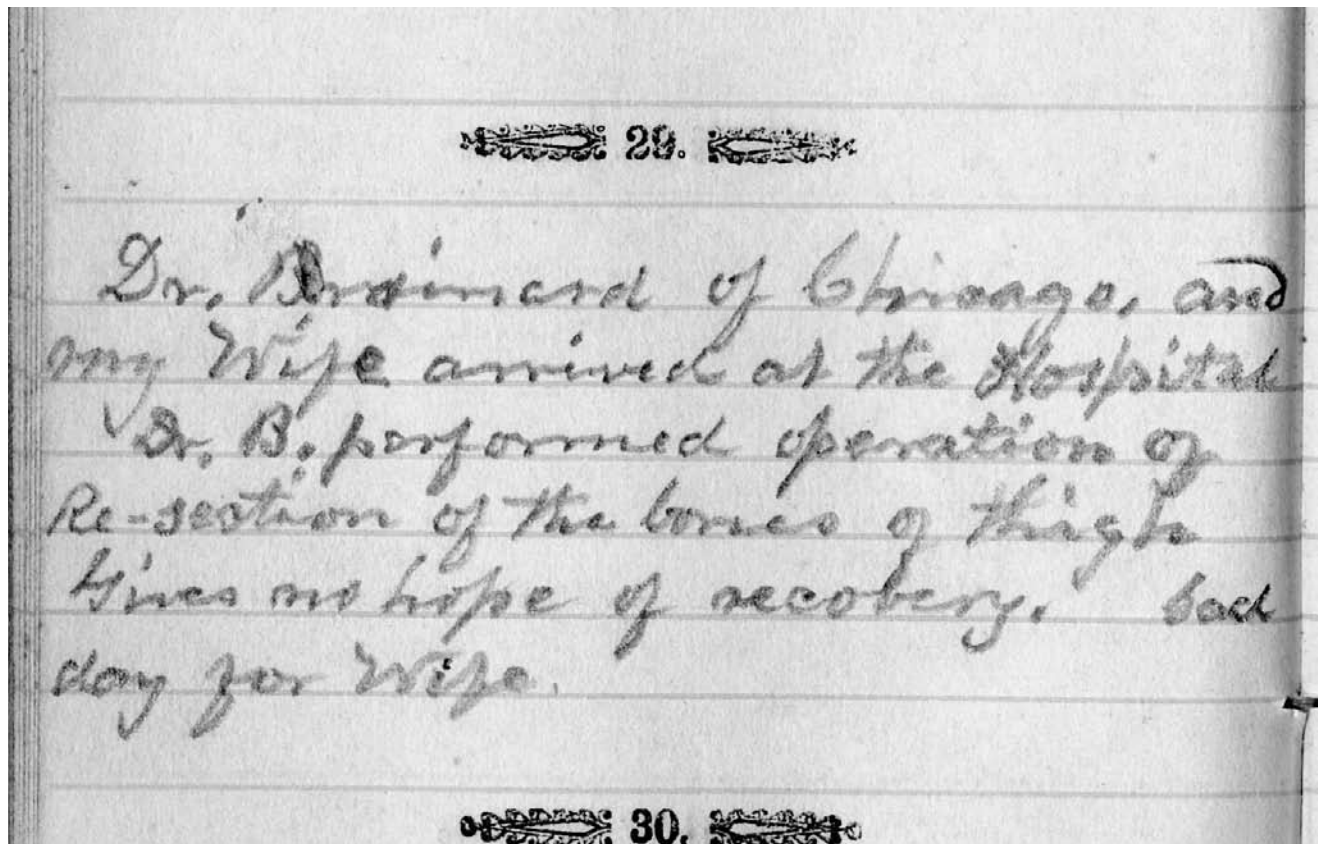 29.
Dr. Brainard of Chicago, and
my Wife arrived at the Hospital
Dr. B. performed operation of
Re-section of the bones of thigh
Gives no hope of recovery. Sad
day for Wife.
30.